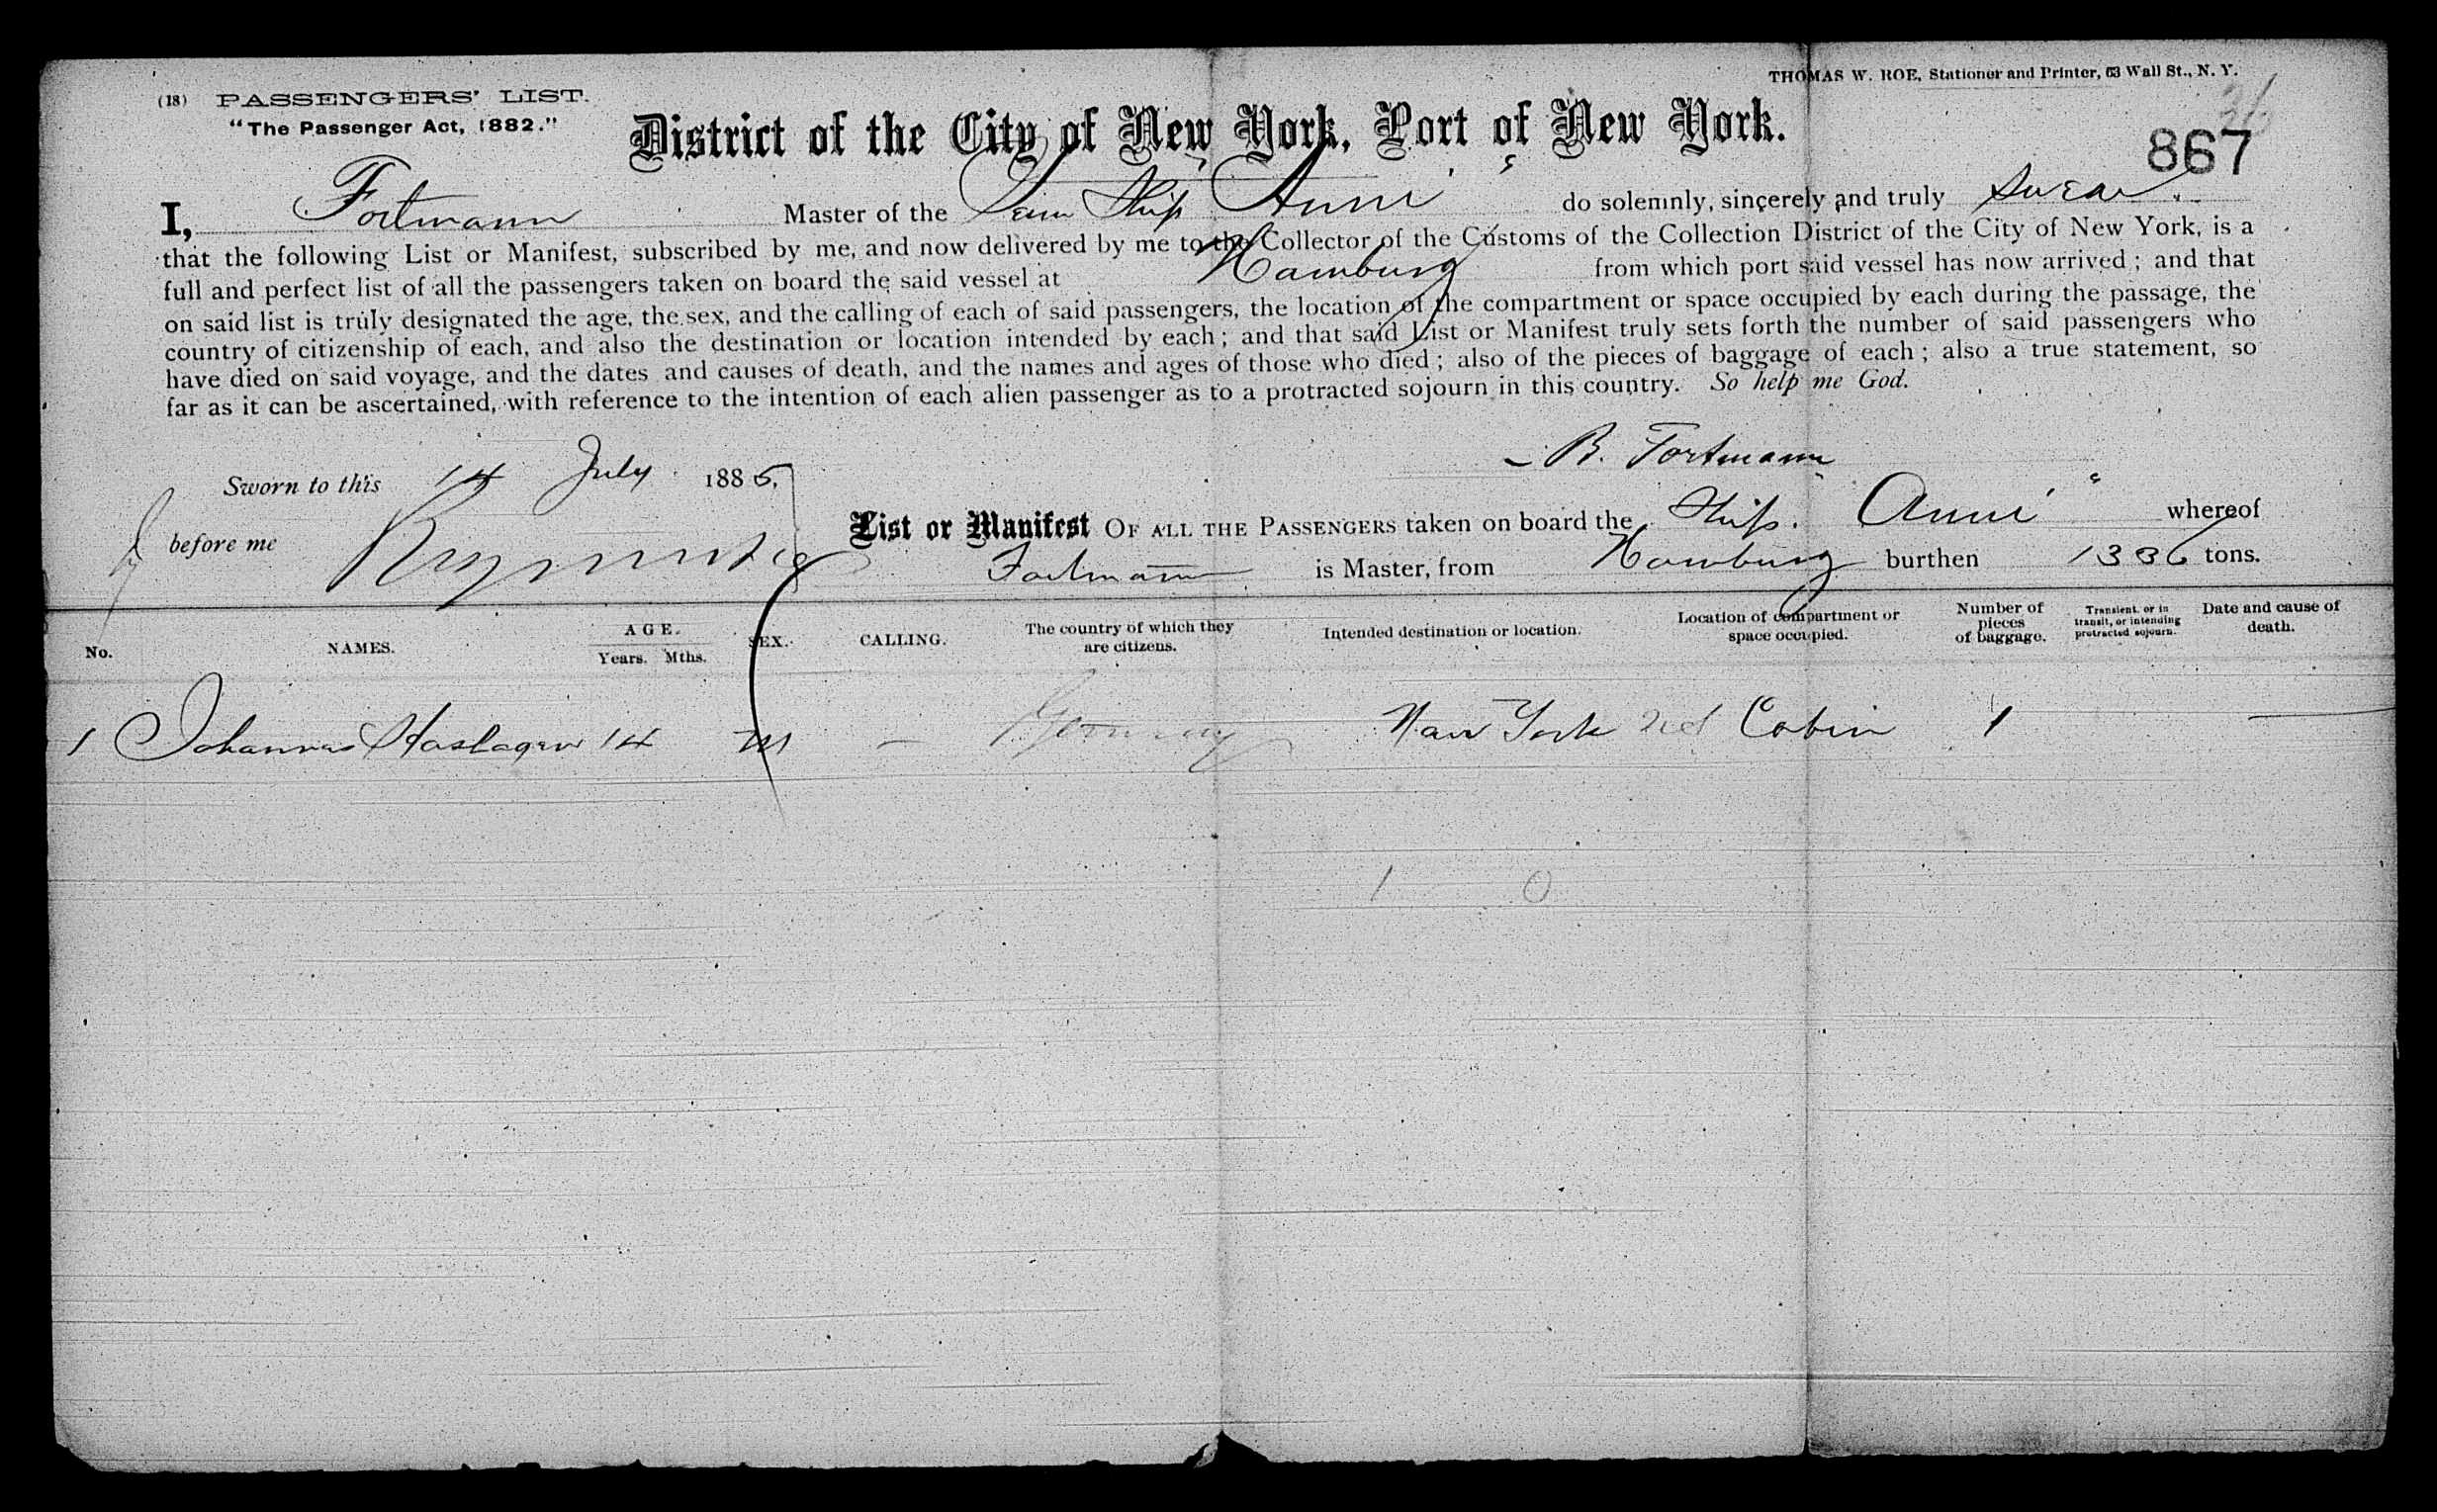 THOMAS W. ROE, Stationer and Printer, 63 Wall St., N. Y.
(18) PASSENGERS' LIST.
"The Passenger Act, 1882."
District of the City of New York, Port of New York.
867
I, Fortmann Master of the Ship "Anni" do solemnly, sincerely and truly swear
that the following List or Manifest, subscribed by me, and now delivered by me to the Collector of the Customs of the Collection District of the City of New York, is a
full and perfect list of all the passengers taken on board the said vessel at Hamburg from which port said vessel has now arrived; and that
on said list is truly designated the age, the sex, and the calling of each of said passengers, the location of the compartment or space occupied by each during the passage, the
country of citizenship of each, and also the destination or location intended by each; and that said List or Manifest truly sets forth the number of said passengers who
have died on said voyage, and the dates and causes of death, and the names and ages of those who died; also of the pieces of baggage of each; also a true statement, so
far as it can be ascertained, with reference to the intention of each alien passenger as to a protracted sojourn in this country. So help me God.
B. Fortmann
Sworn to this 14 July 188
before me
List or Manifest OF ALL THE PASSENGERS taken on board the Ship "Anni" whereof
Fortmann is Master, from Hamburg burthen 1336 tons.
No. NAMES. AGE. Years. Mths. SEX. CALLING. The country of which they are citizens. Intended destination or location. Location of compartment or space occupied. Number of pieces of baggage. Transient, or in transit, or intending protracted sojourn. Date and cause of death.
1 Johannes 14 m — Germany New York 2nd Cabin 1 —
1 0